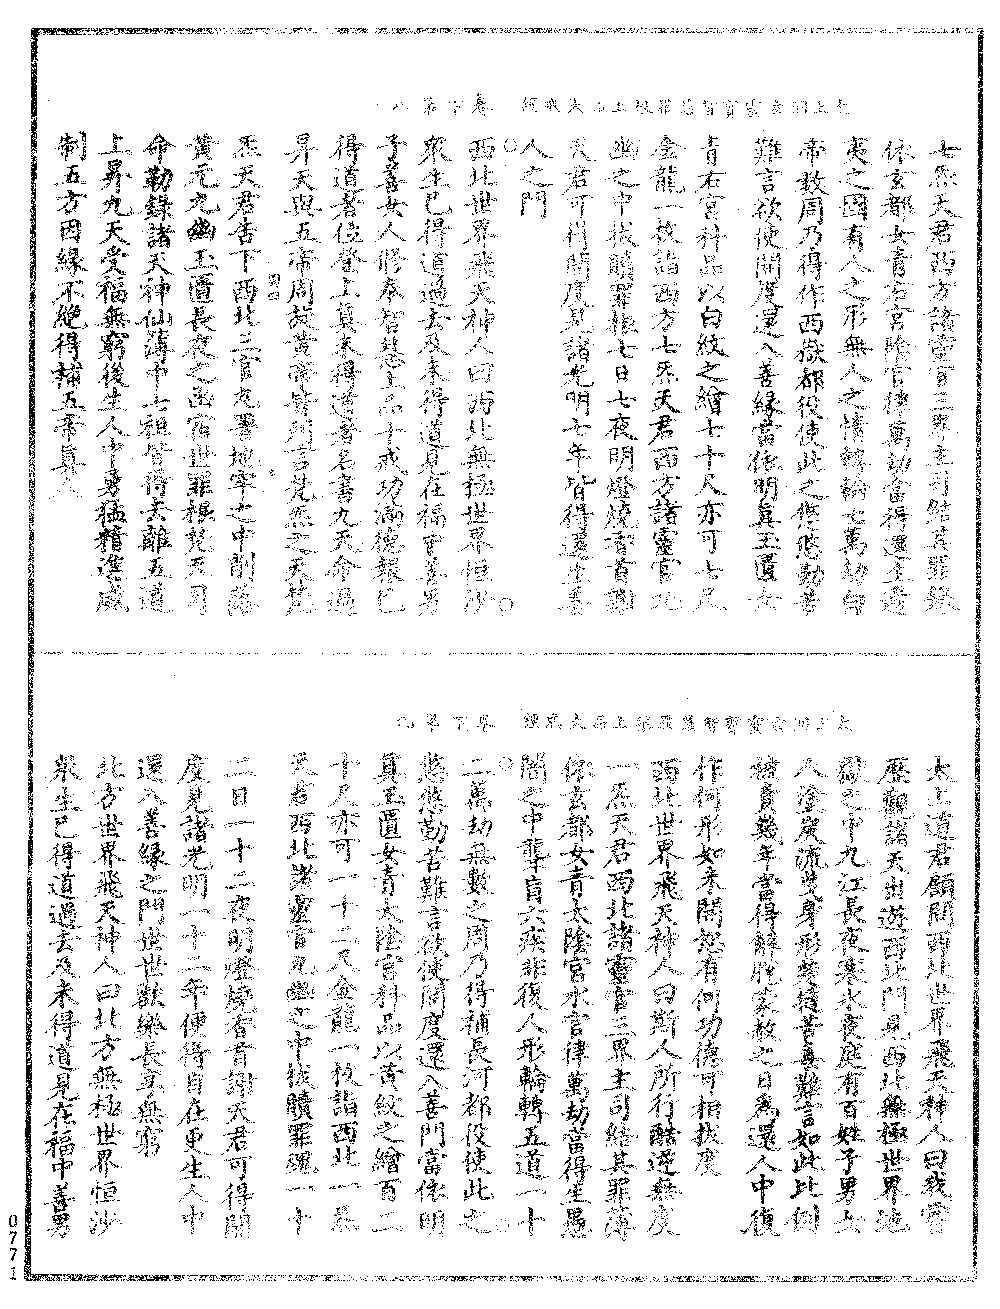 太上洞玄靈寶智慧罪根上品大戒經　卷下第八
七炁天君西方諸靈官三界主司結其罪錄
依玄都女青右宮陰官律萬劫當得還生邊
夷之國有人之形無人之情轉輪七萬劫白
帝數周乃得作西嶽都役使此之悠悠勤苦
難言欲使開度還入善緣當依明真玉匱女
青右宮科品以白紋之繒七十尺亦可七尺
金龍一枚詣西方七炁天君西方諸靈官九
幽之中拔贖罪極七日七夜明燈燒香首謝
天君可得開度見諸光明七年皆得還生善
人之門
西北世界飛天神人曰西北無極世界恒沙
眾生已得道過去及未得道見在福中善男
子善女人修奉智慧上品十戒功滿德報已
得道者位登上真未得道者名書九天命過
昇天與五帝周旋黃帝皆列言梵炁之天梵
炁天君告下西北三官九署地牢之中削落
黃元九幽玉匱長夜之函宿世罪根梵天司
命勒錄諸天神仙薄中七祖皆得去離五道
上昇九天受福無窮後生人中勇猛精進威
制五方因緣不絕得補五帝真人
太上洞玄靈寶智慧罪根上品大戒經　卷下第九
太上道君顧問西北世界飛天神人曰我嘗
歷觀諸天出遊西北門見西北無極世界地
獄之中九江長夜寒氷夜庭有百姓子男女
人塗炭流曳身形楚撻苦毒難言如此比例
積責幾年當得解脫蒙赦之日為還人中復
作何形如來開惌有何功德可相拔度
西北世界飛天神人曰斯人所行酷逆無度
一炁天君西北諸靈官三界主司結其罪薄
依玄都女青太陰宮水官律萬劫當得生愚
闇之中聾盲六疾非復人形輪轉五道一十
二萬劫無數之周乃得補長河都役使此之
悠悠勤苦難言欲使開度還入善門當依明
真玉匱女青太陰宮科品以黃紋之繒百二
十尺亦可一十二尺金龍一枚詣西北一炁
天君西北諸靈官九幽之中拔贖罪魂一十
二日一十二夜明燈燒香首謝天君可得開
度見諸光明一十二年便得自在更生人中
還入善緣之門世世歡樂長享無窮
北方世界飛天神人曰北方無極世界恒沙
眾生已得道過去及未得道見在福中善男
0771